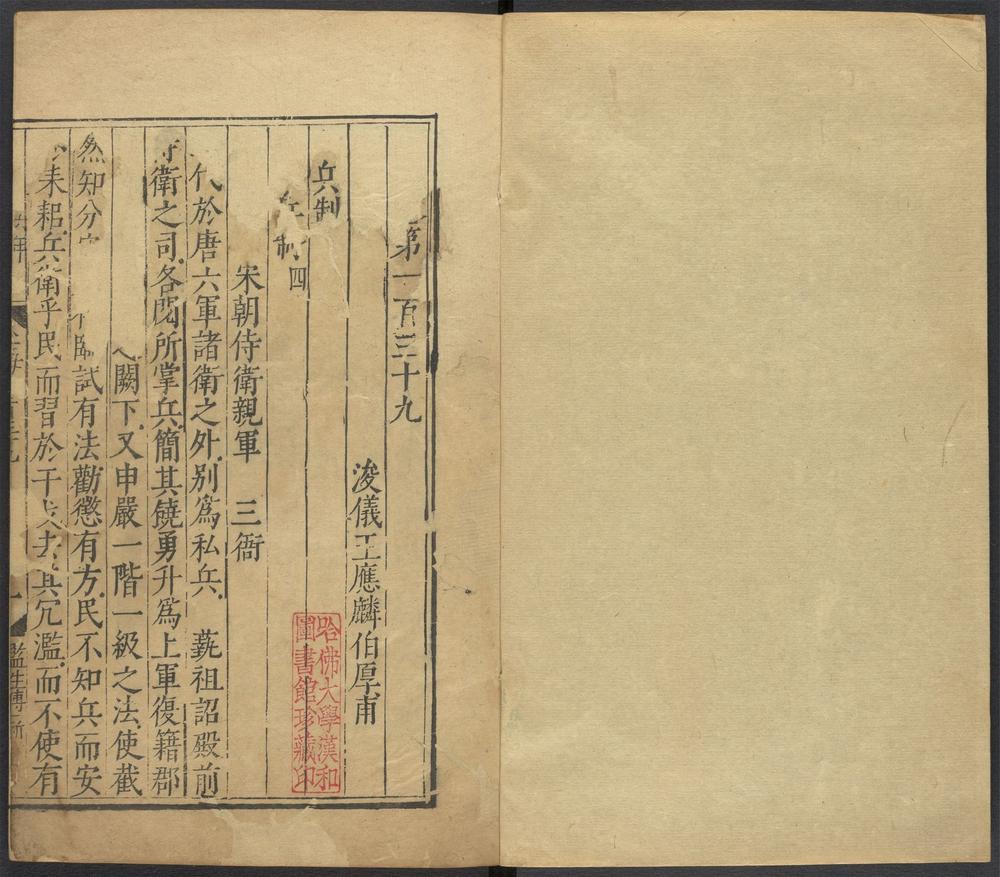 第一百三十九
浚儀王應麟伯厚甫
兵制
兵制四
宋朝侍衛親軍　三衙
代於唐六軍諸衛之外別爲私兵　蓺祖詔殿前
衛之司各閱所掌兵簡其饒勇升爲上軍復籍郡
闕下又申嚴一階一級之法使截
然知分　試有法勸懲有方民不知兵而安
耒耜兵衛乎民而習於干戈去其冗濫而不使有
監生傅
哈佛大學漢和
圖書館珍藏印